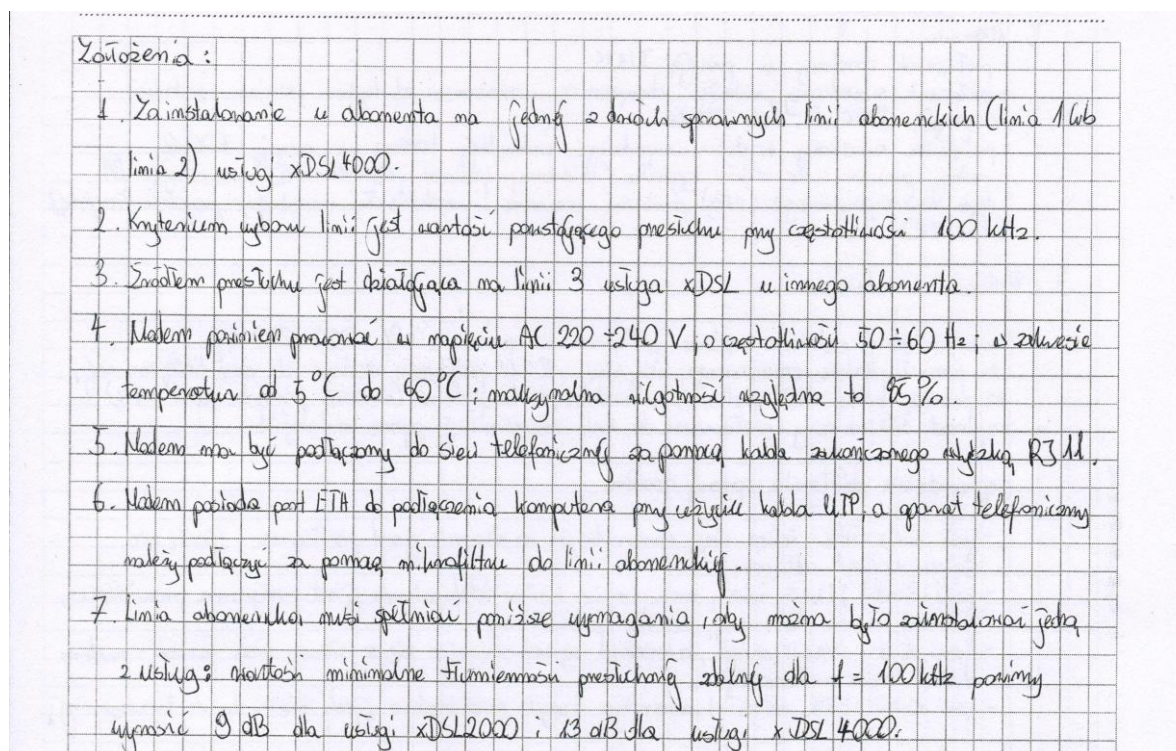 Założenia:
1. Zainstalowanie u abonenta na jednej z dwóch sprawnych linii abonenckich (linia 1 lub
linia 2) usługi xDSL4000.
2. Kryterium wyboru linii jest wartość powstającego przesłuchu przy częstotliwości 100 kHz.
3. Źródłem przesłuchu jest działająca na linii 3 usługa xDSL u innego abonenta.
4. Modem powinien pracować w napięciu AC 220÷240 V, o częstotliwości 50÷60 Hz; w zakresie
temperatur od 5°C do 60°C; maksymalna wilgotność względna to 95%.
5. Modem ma być podłączony do sieci telefonicznej za pomocą kabla zakończonego wtyczką RJ11.
6. Modem posiada port ETH do podłączenia komputera przy użyciu kabla UTP, a aparat telefoniczny
należy podłączyć za pomocą mikrofiltru do linii abonenckiej.
7. Linia abonencka musi spełniać poniższe wymagania, aby można było zainstalować jedną
z usług: wartości minimalne tłumienności przesłuchowej zdalnej dla f = 100 kHz powinny
wynosić 9 dB dla usługi xDSL2000 i 13 dB dla usługi xDSL4000.